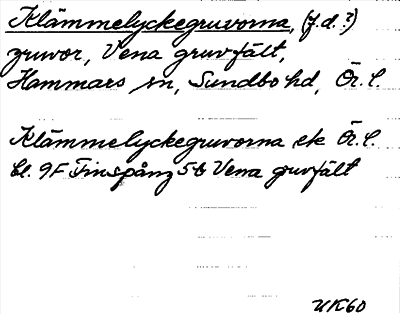 Klämmelyckegruvorna, (f.d.?)
gruvor, Vena gruvfält,
Hammars sn, Sundbo hd, Ör. l.
Klämmelyckegruvorna ek Ör. l.
bl. 9F Finspång 5b Vena gruvfält
UK60